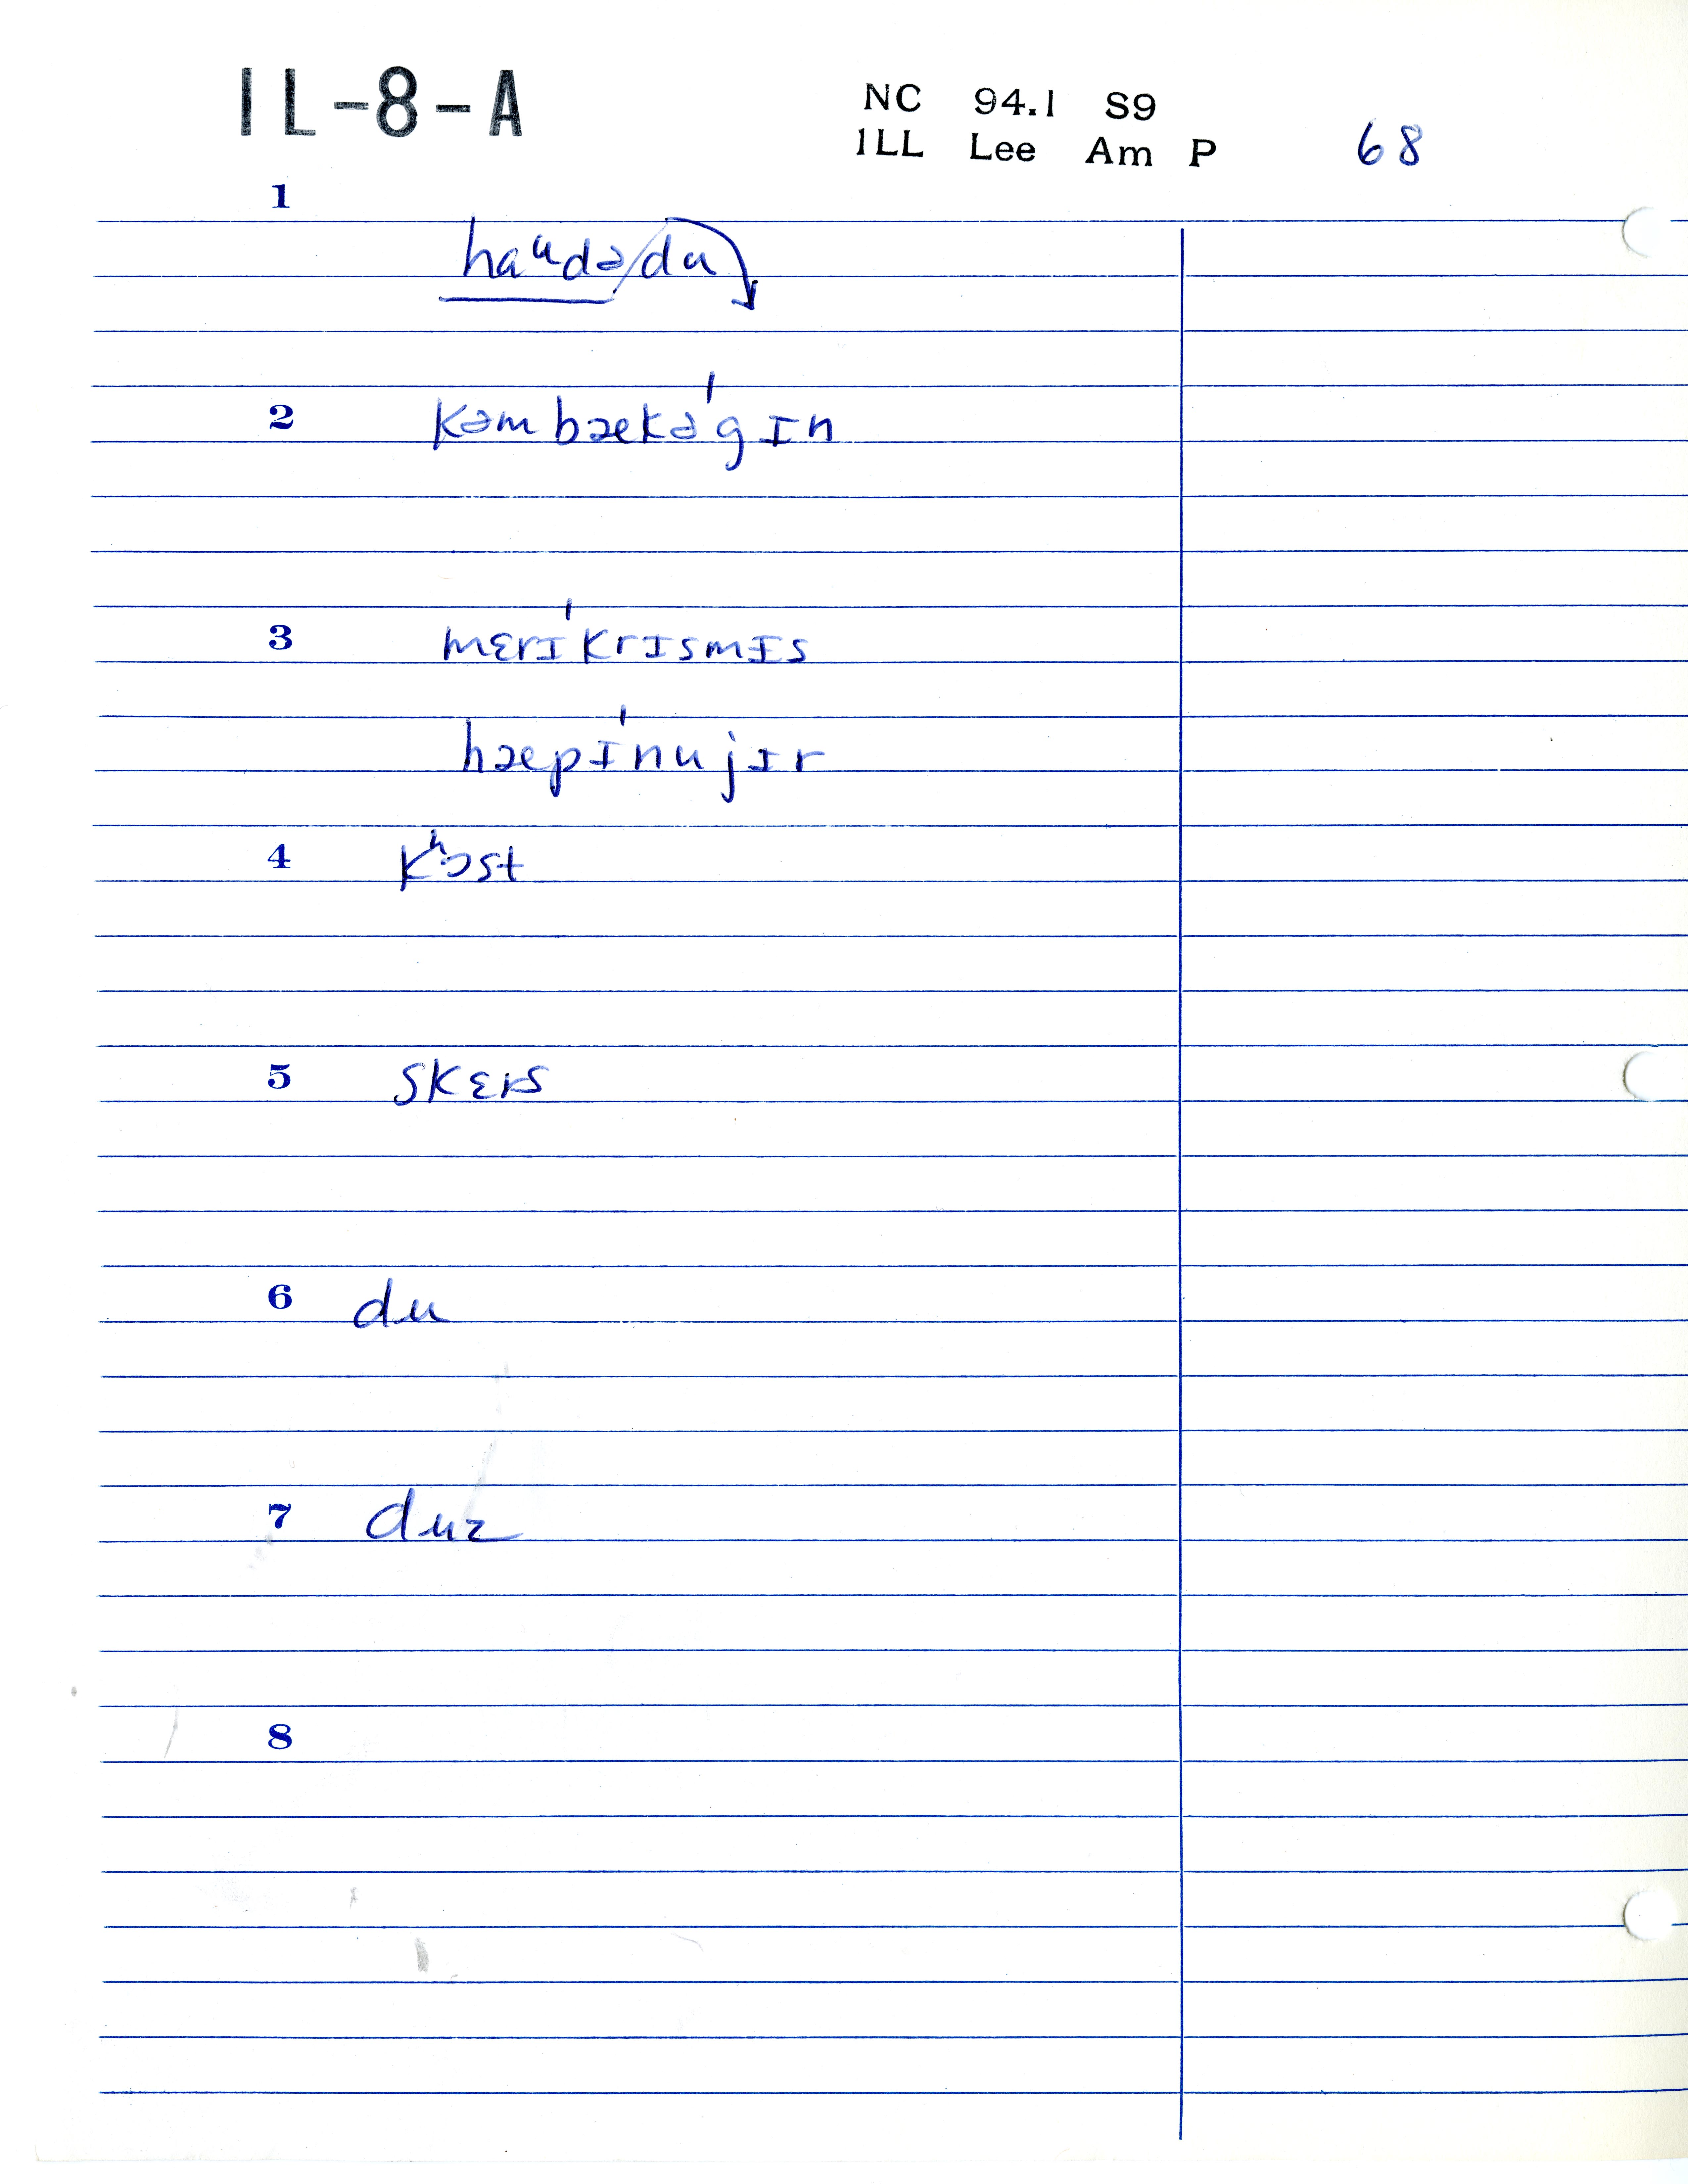 IL-8-A
NC 94.1 S9
ILL Lee Am P 68
1
haᵘdə/du
2 kəmbækəˈgɪn
3 mɛrɪˈkrɪsmɪs
hæpɪˈnujɪr
4 kʰɔst
5 skɛrs
6 du
7 duz
8